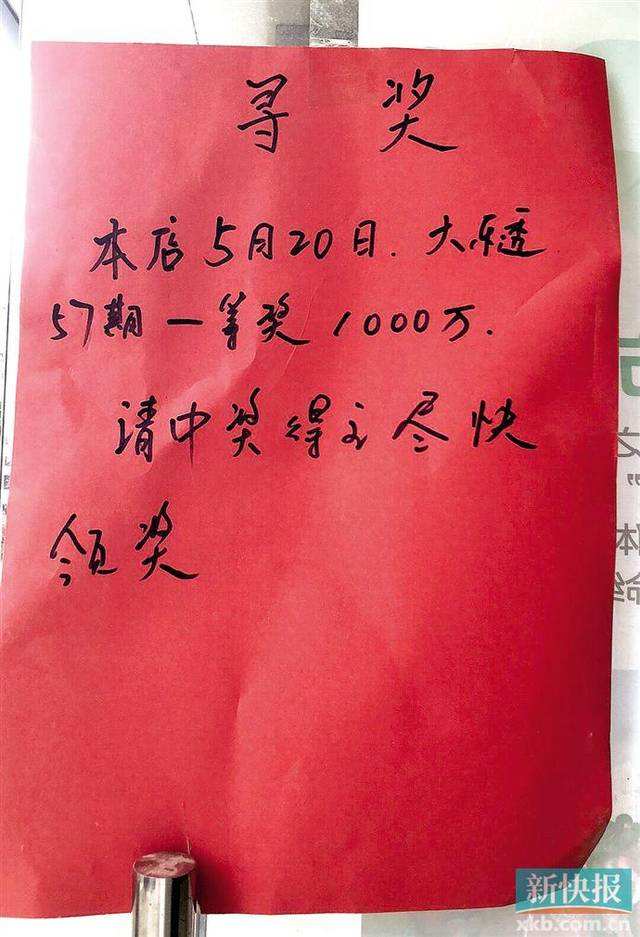 寻奖
本店5月20日.大乐透
57期一等奖1000万.
请中奖得主尽快
领奖
之
"
体
新快报
xkb.com.cn